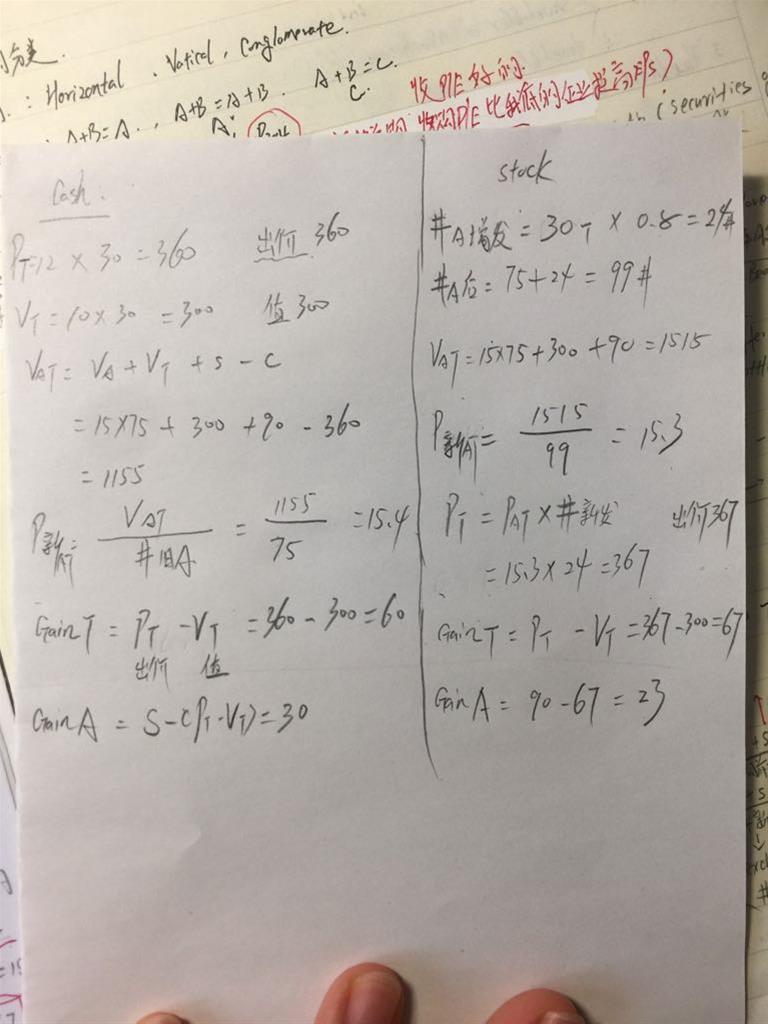 分类.
: Horizontal . Vatical , Conglomerate.
A+B=A . , A+B=A+B . A+B=C.
A. C.
收P/E好的.
收购P/E比我低的企业提高EPS?
(securities
Cash:
P_T=12 × 30 = 360 出价 360
V_T = 10×30 = 300 值 300
V_AT = V_A + V_T + S - C
= 15×75 + 300 + 90 - 360
= 1155
P新AT = V_AT / #旧A = 1155 / 75 = 15.4
Gain T = P_T - V_T = 360 - 300 = 60
出价 值
Gain A = S-(P_T-V_T) = 30
stock
#A增发 = 30T × 0.8 = 24#
#A后 = 75+24 = 99#
V_AT = 15×75+300+90 = 1515
P新AT = 1515 / 99 = 15.3
P_T = P_AT × #新发 出价367
= 15.3×24 = 367
Gain T = P_T - V_T = 367-300 = 67
Gain A = 90-67 = 23